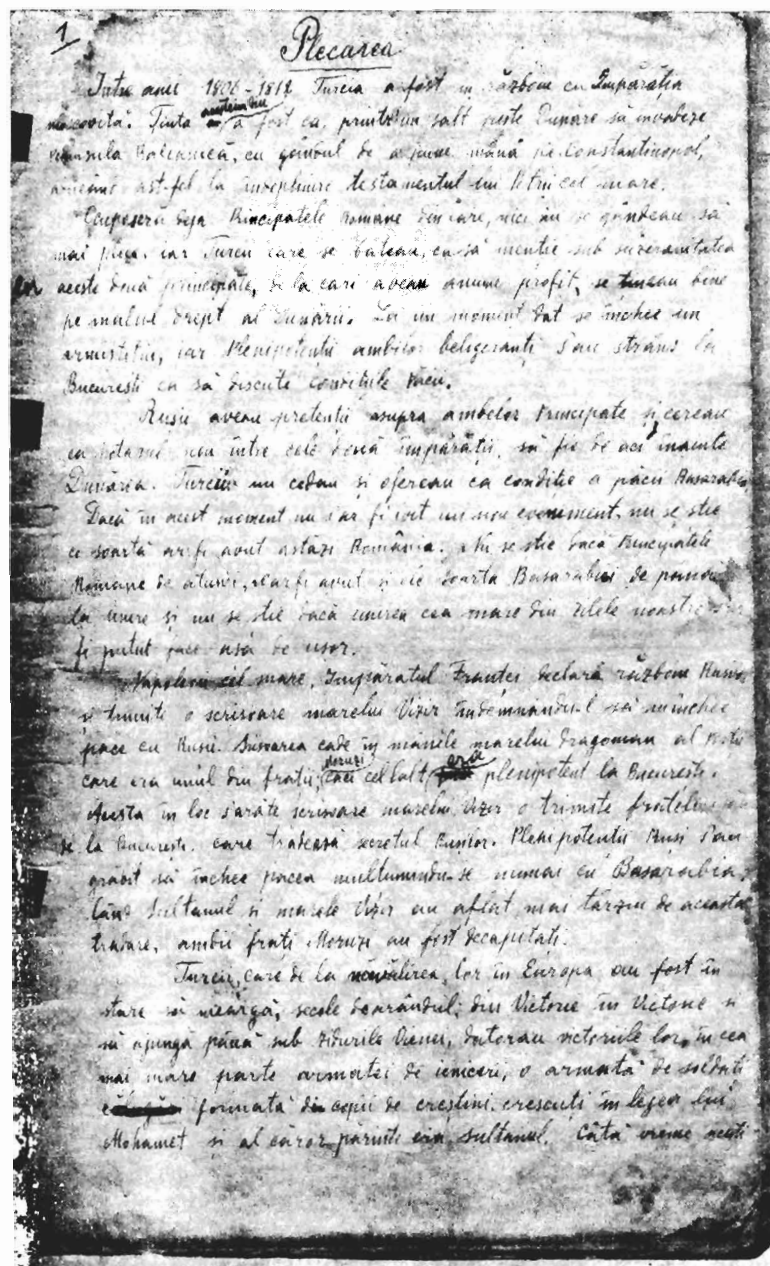 1
Plecarea
Între anii 1806-1812 Turcia a fost în războiu cu Împărăția
moscovită. Ținta acesteia a fost ca, printr'un salt peste Dunăre să invadeze
peninsula Balcanică, cu gândul de a pune mâna pe Constantinopol,
ast-fel la îndeplinire testamentul lui Petru cel mare.
Ocupaseră deja Principatele Române din care, nici nu se gândeau să
mai plece, iar Turcii care se băteau, ca să menție sub suzeranitatea
lor aceste două principate, de la cari aveau anume profit, se țineau bine
pe malul drept al Dunării. La un moment dat se închee un
armistițiu, iar Plenipotenții ambilor beligeranți s'au strâns la
București ca să discute condițiile păcii.
Rușii aveau pretenții asupra ambelor Principate și cereau
ca hotarul nou între cele două împărății, să fie de aci înainte
Dunărea. Turcii nu cedau și ofereau ca condiție a păcii Basarabia.
Dacă în acest moment nu s'ar fi ivit un nou eveniment, nu se știe
ce soartă ar fi avut astăzi România. Nu se știe dacă Principatele
Române de atunci, n'ar fi avut și ele soarta Basarabiei de până
la unire și nu se știe dacă unirea cea mare din zilele noastre s'ar
fi putut face așa de ușor.
Napoleon cel mare, Împăratul Franței declară războiu Rusiei
și trimite o scrisoare marelui Vizir îndemnându-l să nu închee
pace cu Rușii. Scrisoarea cade în mâinile marelui dragoman al Porții
care era unul din frații Moruzi căci cel'lalt era plenipotent la București.
Acesta în loc s'arate scrisoarea marelui Vizir o trimite fratelui
de la București, care trădează secretul Rușilor. Plenipotenții Ruși s'au
grăbit să închee pacea mulțumindu-se numai cu Basarabia,
Când Sultanul și marele Vizir au aflat mai târziu de această
trădare, ambii frați Moruzi au fost decapitați.
Turcii, care de la năvălirea lor în Europa au fost în
stare să meargă, secole dearândul, din victorie în victorie și
să ajungă până sub zidurile Vienei, datorau victoriile lor, în cea
mai mare parte armatei de ieniceri, o armată de soldați
formată din copii de creștini, crescuți în legea lui
Mohamet și al căror părinte era Sultanul. Câtă vreme acești